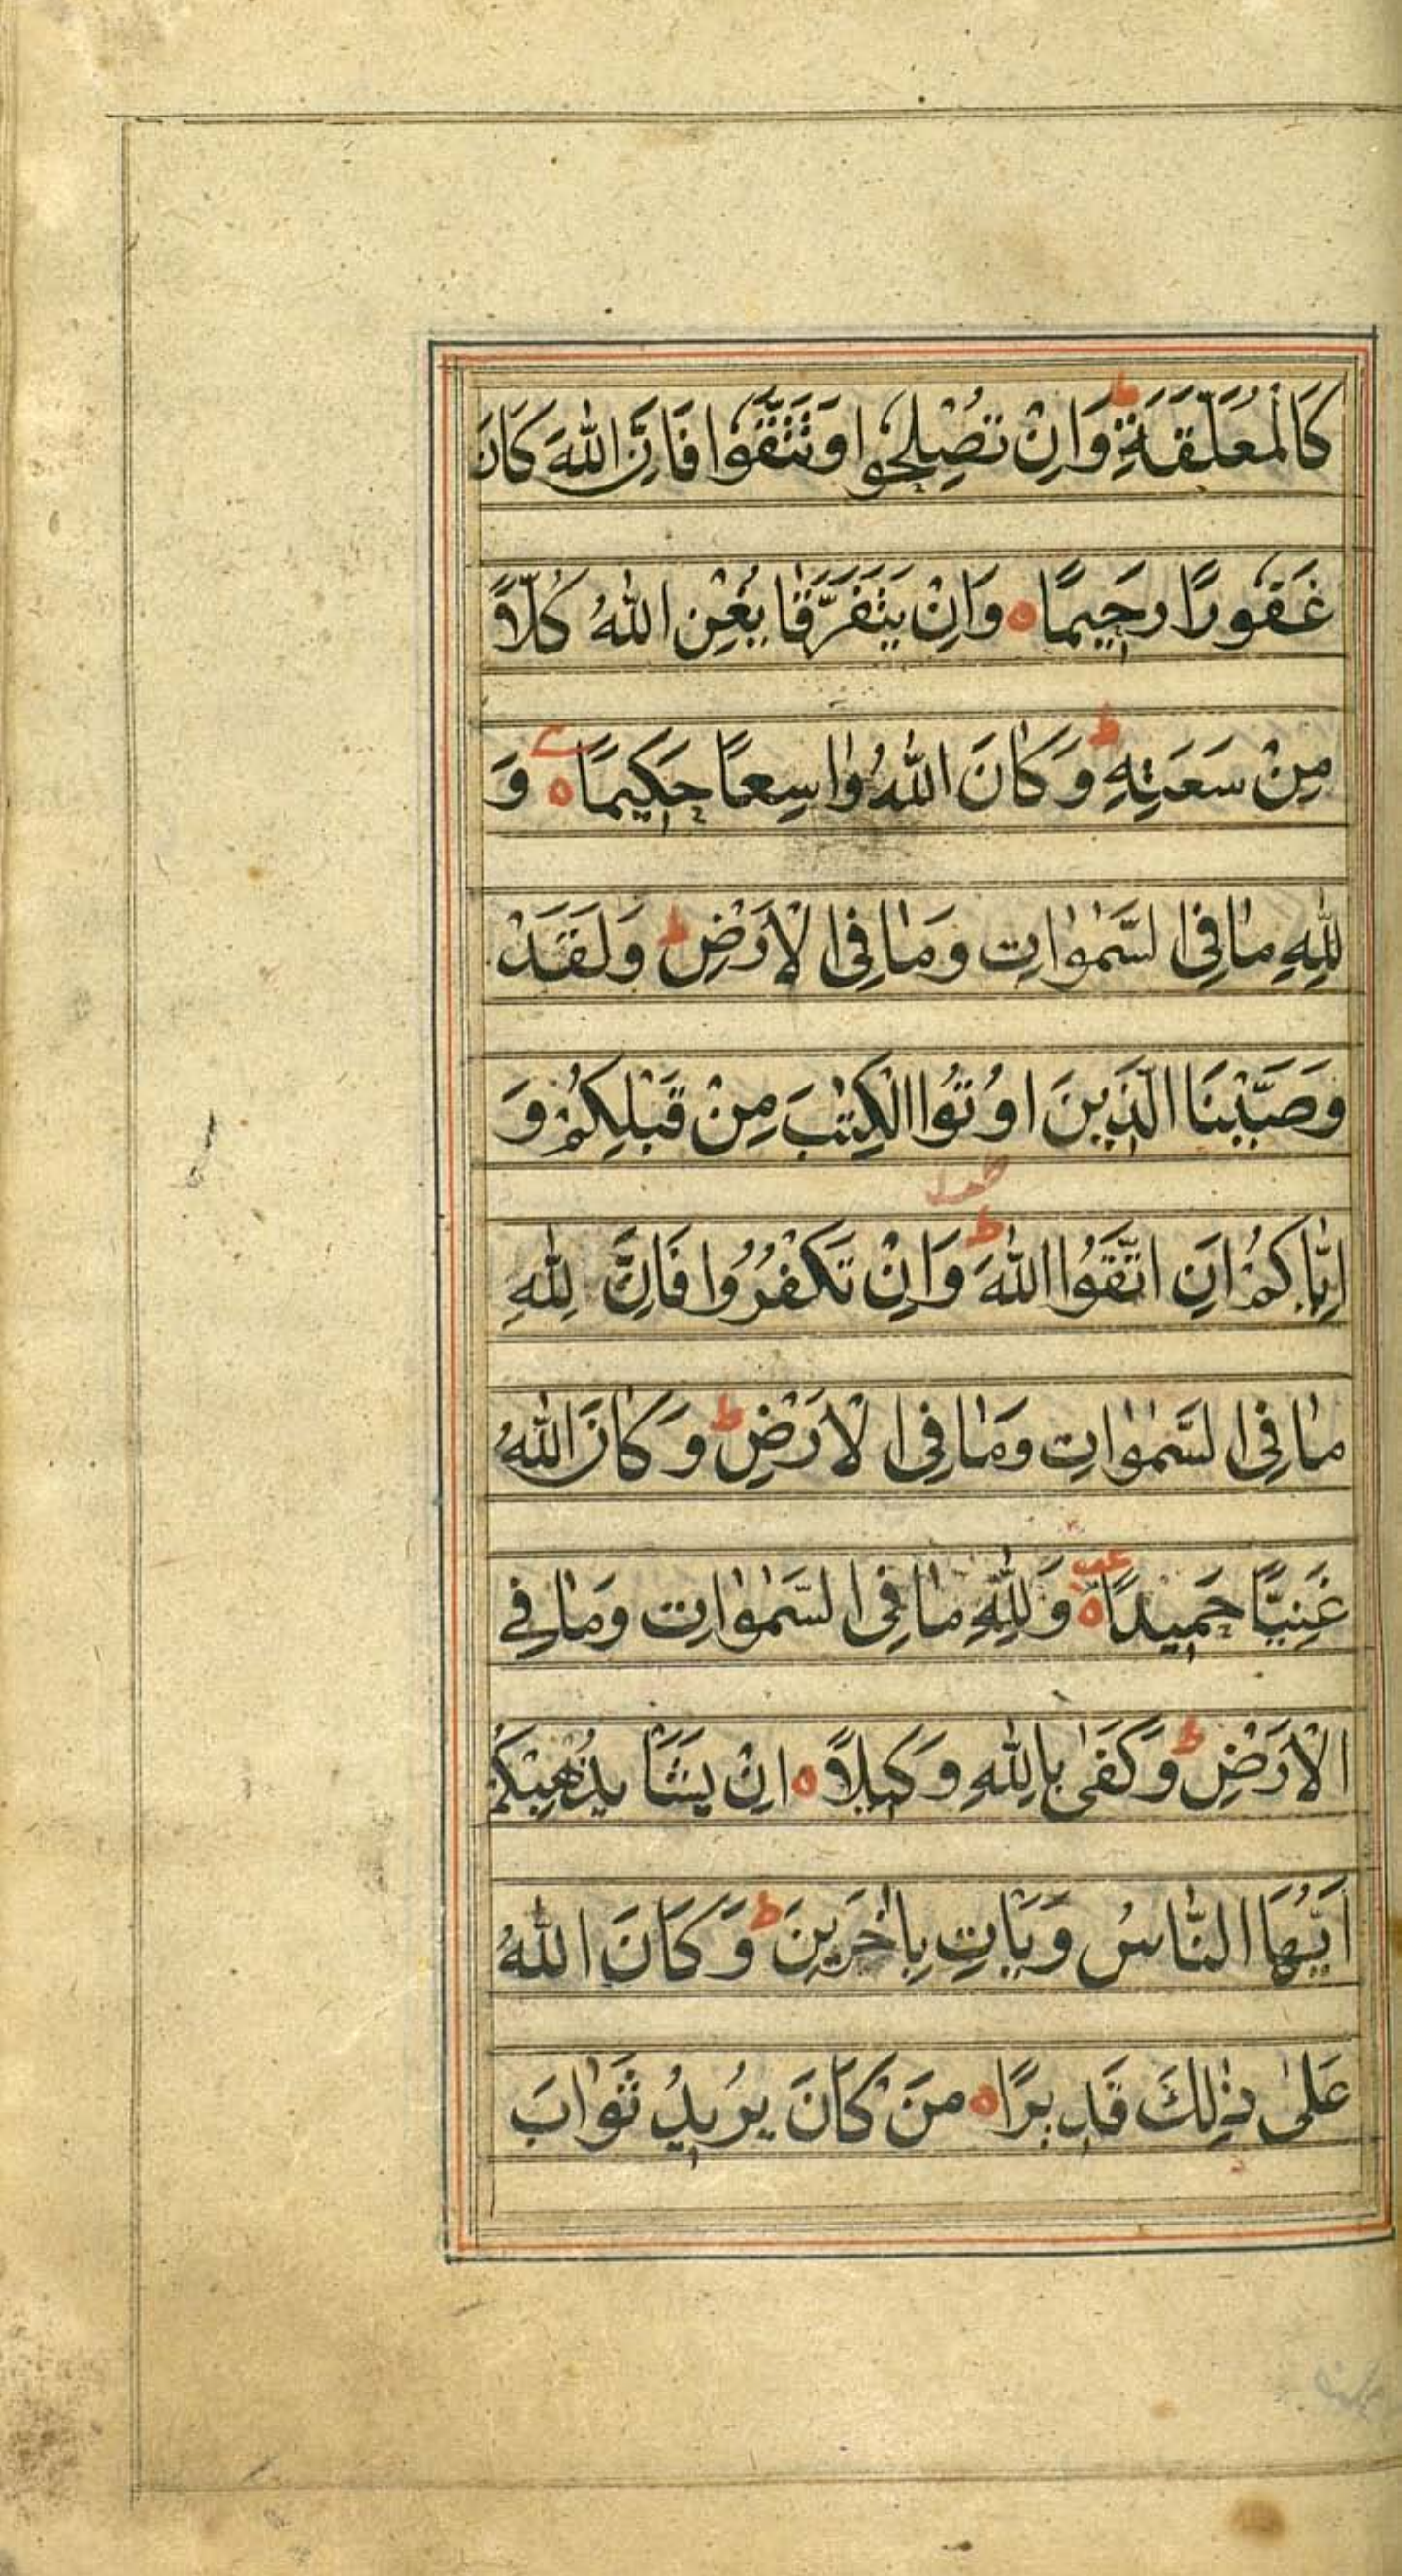 كَالْمُعَلَّقَةِ ط وَاِنْ تُصْلِحُوا وَتَتَّقُوا فَاِنَّ اللّٰهَ كَانَ
غَفُورًا رَحِيمًا ه وَاِنْ يَتَفَرَّقَا يُغْنِ اللّٰهُ كُلّاً
مِنْ سَعَتِهِ ط وَكَانَ اللّٰهُ وٰاسِعًا حَكِيمًا ه وَ
لِلّٰهِ مٰا فِى السَّمٰوٰاتِ وَمٰا فِى الْاَرْضِ ط وَلَقَدْ
وَصَّيْنَا الَّذِينَ اُوتُوا الْكِتٰبَ مِنْ قَبْلِكُمْ وَ
اِيّٰاكُمْ اَنِ اتَّقُوا اللّٰهَ ط وَاِنْ تَكْفُرُوا فَاِنَّ لِلّٰهِ
مٰا فِى السَّمٰوٰاتِ وَمٰا فِى الْاَرْضِ ط وَكَانَ اللّٰهُ
غَنِيًّا حَمِيدًا ه وَلِلّٰهِ مٰا فِى السَّمٰوٰاتِ وَمٰا فِى
الْاَرْضِ ط وَكَفىٰ بِاللّٰهِ وَكِيلاً ه اِنْ يَشَأْ يُذْهِبْكُمْ
اَيُّهَا النّٰاسُ وَيَأْتِ بِاٰخَرِينَ ط وَكَانَ اللّٰهُ
عَلىٰ ذٰلِكَ قَدِيرًا ه مَنْ كَانَ يُرِيدُ ثَوٰابَ